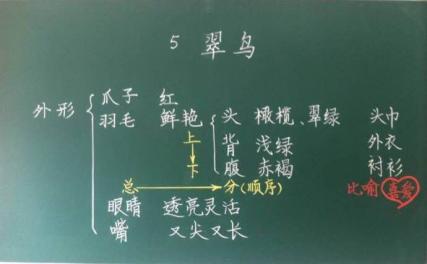 5 翠鸟
外形
爪子 红
羽毛 鲜艳 头 橄榄、翠绿 头巾
上 背 浅绿 外衣
下 腹 赤褐 衬衫
总 分(顺序) 比喻 喜爱
眼睛 透亮灵活
嘴 又尖又长